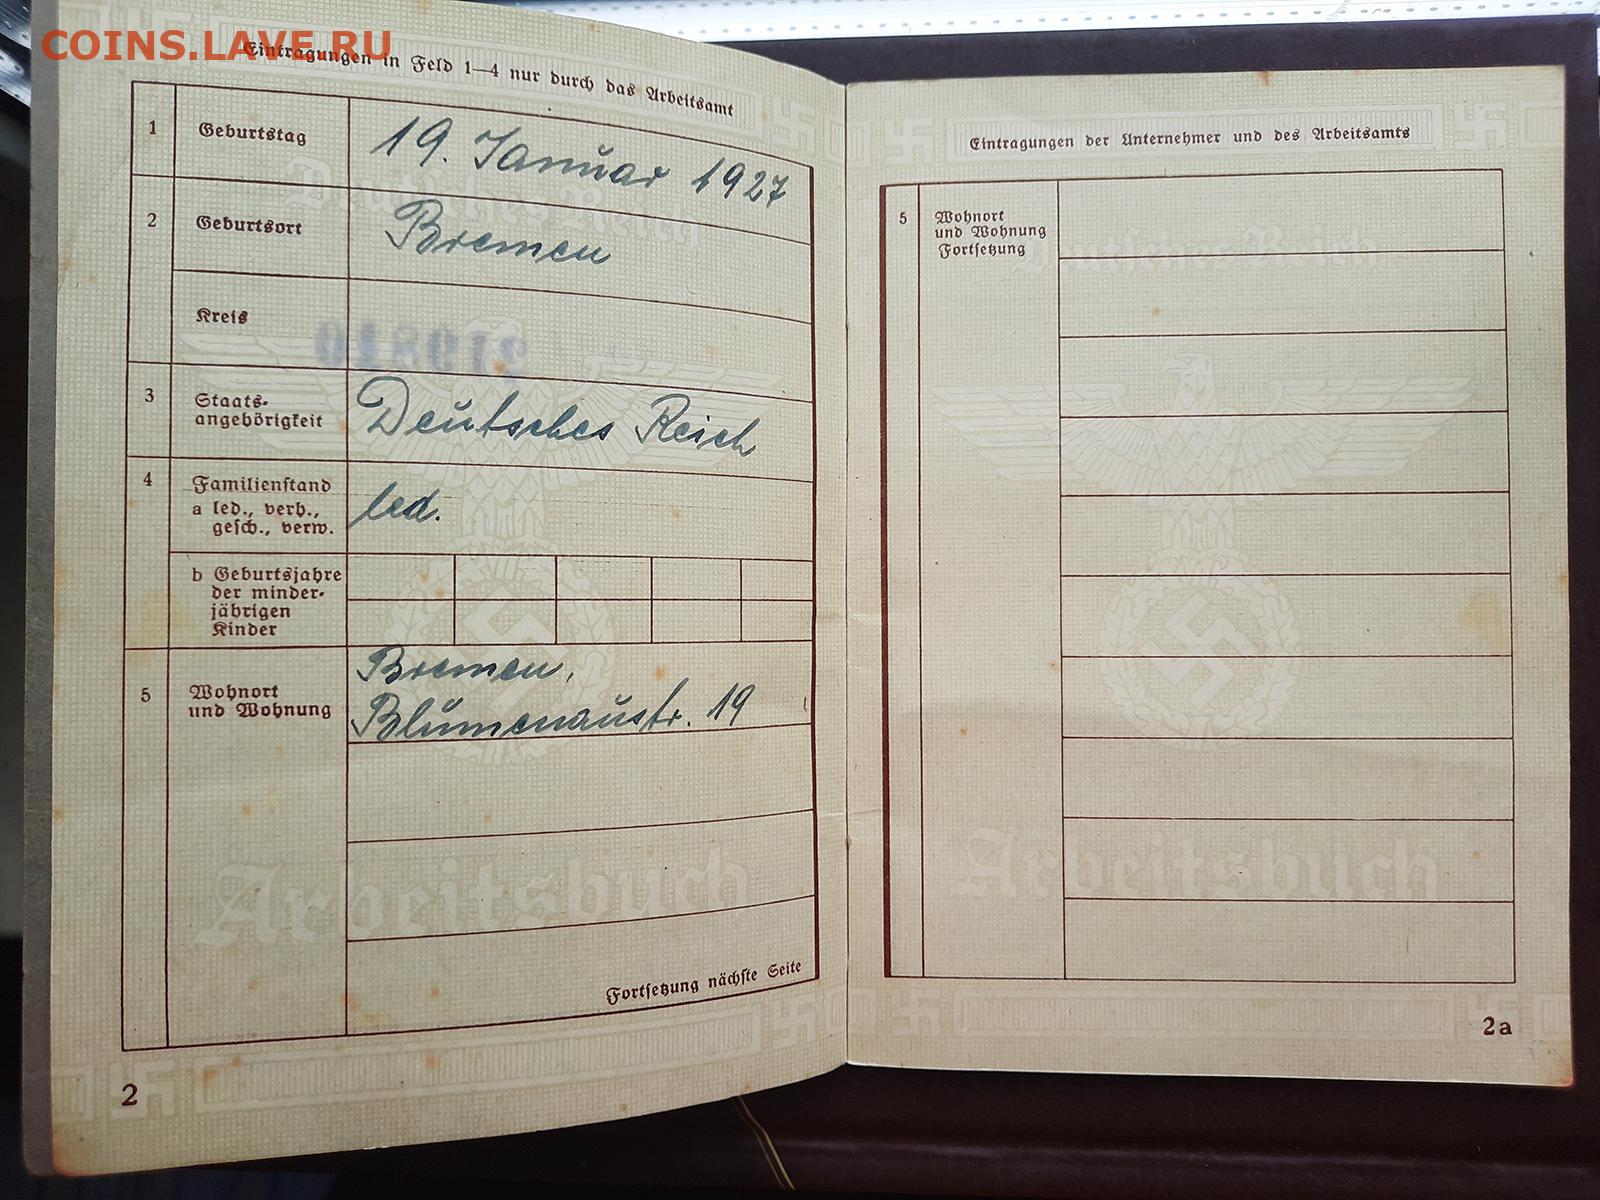 COINS.LAVE.RU
Eintragungen in Feld 1—4 nur durch das Arbeitsamt
1 Geburtstag 19. Januar 1927
2 Geburtsort Bremen
Kreis
3 Staats-
angehörigkeit Deutsches Reich
4 Familienstand
a led., verh., led.
gesch., verw.
b Geburtsjahre
der minder-
jährigen
Kinder
5 Wohnort Bremen,
und Wohnung Blumenaustr. 19
Fortsetzung nächste Seite
2
Deutsches Reich
Arbeitsbuch
Eintragungen der Unternehmer und des Arbeitsamts
5 Wohnort
und Wohnung
Fortsetzung
Deutsches Reich
Arbeitsbuch
2a